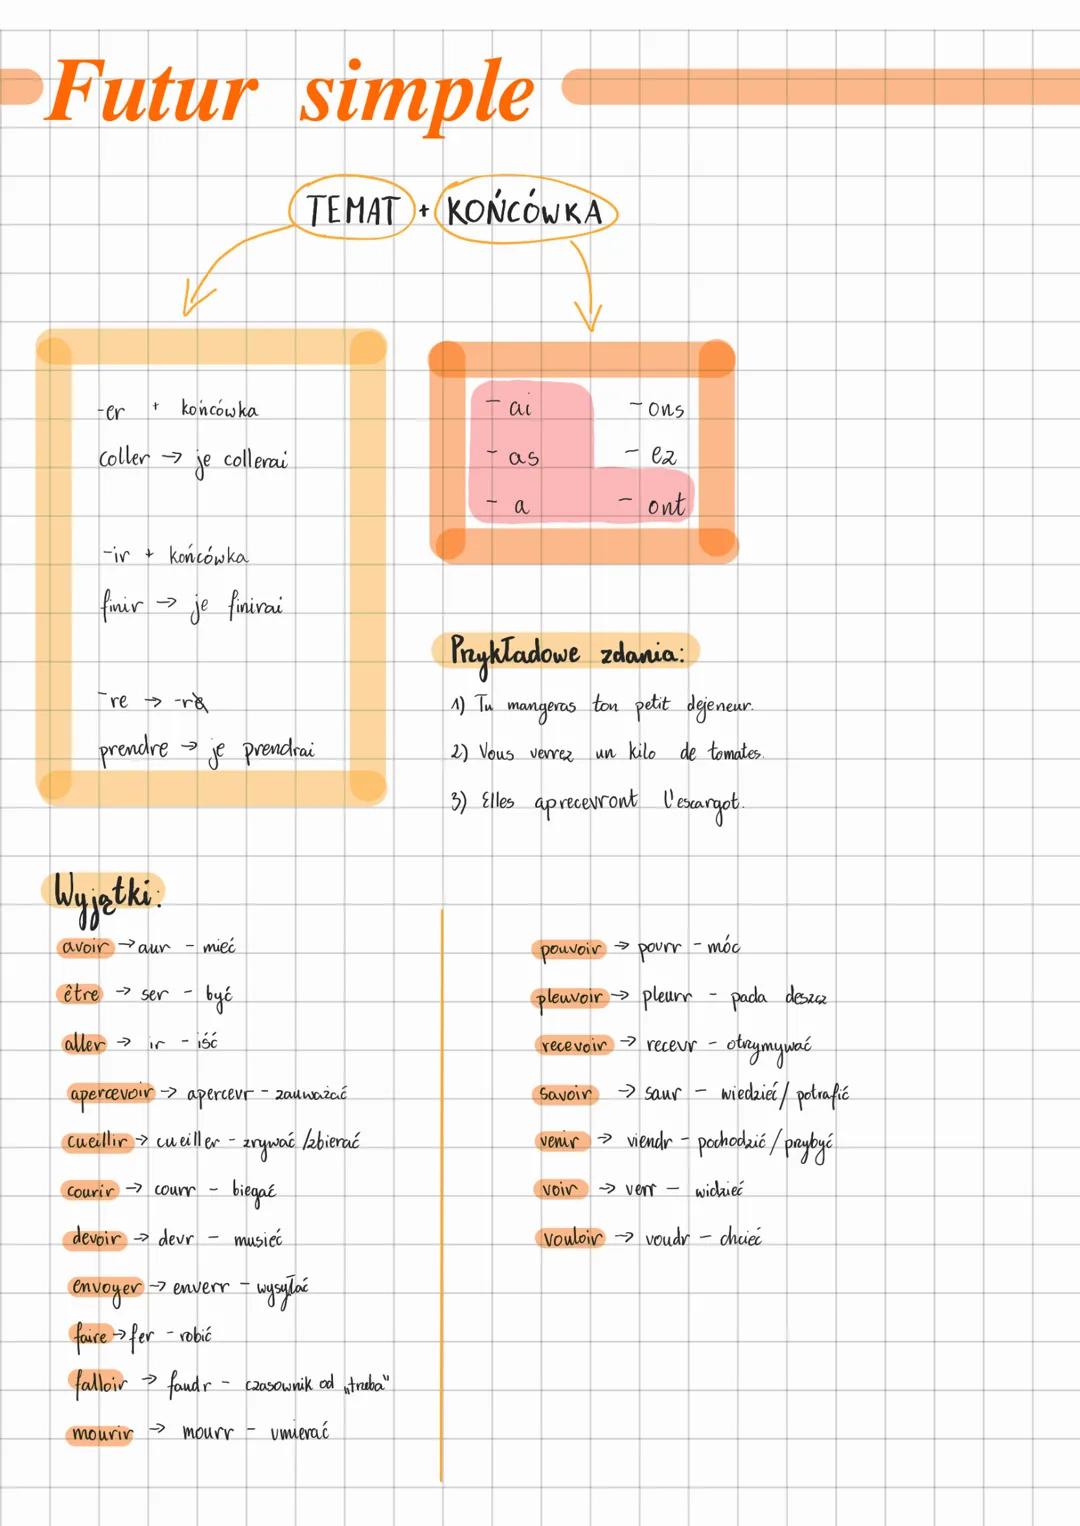 Futur simple
TEMAT + KOŃCÓWKA
-er + końcówka
coller → je collerai
-ir + końcówka
finir → je finirai
-re → -re
prendre → je prendrai
- ai - ons
- as - ez
- a - ont
Przykładowe zdania:
1) Tu mangeras ton petit dejeneur.
2) Vous verrez un kilo de tomates.
3) Elles aprecevront l'escargot.
Wyjątki:
avoir → aur - mieć
être → ser - być
aller → ir - iść
apercevoir → apercevr - zauważać
cueillir → cueiller - zrywać /zbierać
courir → courr - biegać
devoir → devr - musieć
envoyer → enverr - wysyłać
faire → fer - robić
falloir → faudr - czasownik od „trzeba"
mourir → mourr - umierać
pouvoir → pourr - móc
pleuvoir → pleurr - pada deszcz
recevoir → recevr - otrzymywać
savoir → saur - wiedzieć / potrafić
venir → viendr - pochodzić / przybyć
voir → verr - widzieć
vouloir → voudr - chcieć